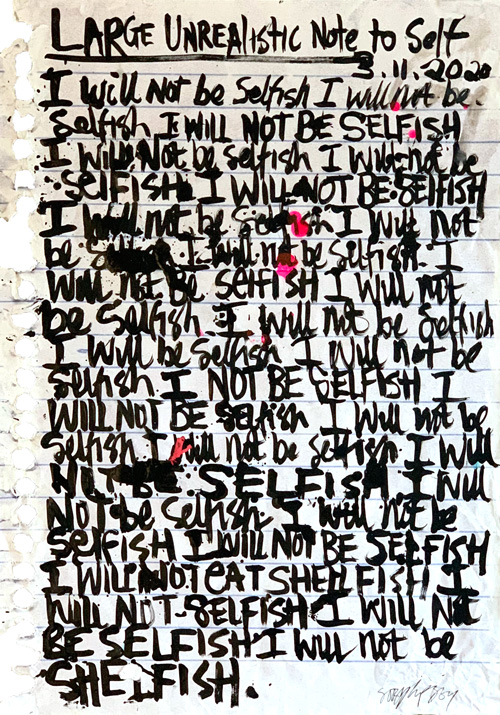 LARGE UNREAlistic Note to Self
3.11.2020
I will Not be Selfish I will not be
Selfish I WILL NOT BE SELFISH
I will Not be selfish I will not be
SELFISH I WILL NOT BE SELFISH
I will not be I will not
be I will not be selfish. I
will not Be selfish I will not
be selfish I will not be selfish
I will be selfish I will not be
selfish I NOT BE SELFISH I
WILL NOT BE selfish I will not be
selfish I will not be selfish I will
NOT BE SELFISH I will
NOT be selfish I will not be
SelfISH I WILL NOT BE SELFISH
I WILL NOT EAT SHELLFISH I
WILL NOT SELFISH I WILL Not
BE SELFISH I will not be
SHELFISH.